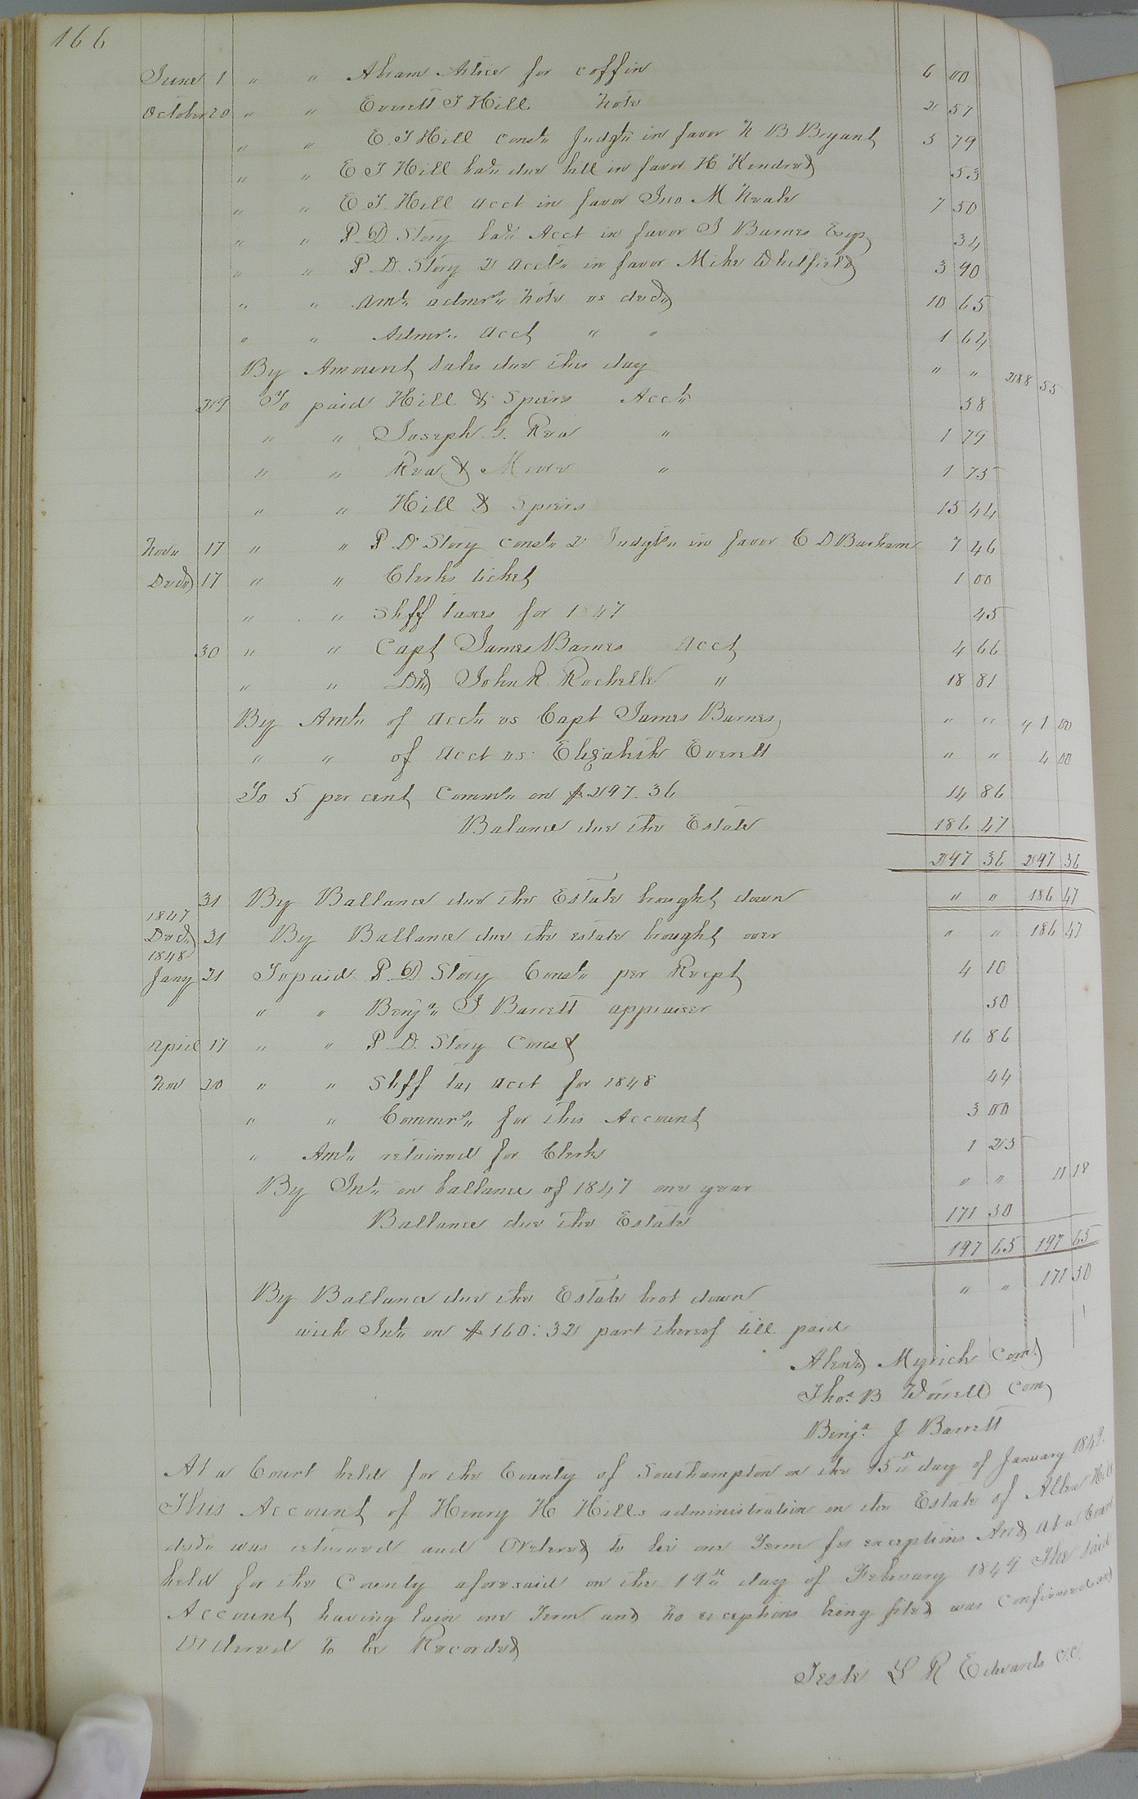 166
June 1 " " Abram Artice for coffin 6 00
October 20 " " Everett J Hill Note 2 57
" " E. J Hill Const Judgt in favor N B Bryant 5 79
" " E J Hill bal due bill in favor H Kindred 53
" " E J. Hill acct in favor Jno. M 7 50
" " P. D. Story bal Acct in favor J Barnes Exps 34
" " P. D. Story 2 Accts in favor Mike Whitfield 3 90
" " Amt admrs Note vs decd 10 65
" " Admrs Acct " " 1 64
By Amount Sales due this day " " 288 55
29 To paid Hill & Spiers Acct 58
" " Joseph G. Rea " 1 79
" " Rea & " 1 75
" " Hill & Spiers 15 44
Nov 17 " " P D Story const 2 Judgts in favor E D Barham 7 46
Decd 17 " " Clerks ticket 1 00
" " Shff taxes for 1847 45
30 " " Capt James Barnes Acct 4 66
" " Dr John R Rochelle " 18 81
By Amt of Acct vs Capt James Barnes " " 4 00
" " of Acct vs Elizabeth Everett " " 4 00
To 5 per cent Comms on $297.36 14 86
Balance due the Estate 186 47
297 36 297 36
31 By Ballance due the Estate brought down " " 186 47
1847
Decd 31 By Ballance due the estate brought over " " 186 47
1848
Jany 21 To paid P. D Story Const per Recpt 4 10
" " Benja J Barrett appraiser 50
April 17 " " P. D. Story Const 16 86
Nov 20 " " Shff tax acct for 1848 44
" " Commrs for this Account 3 00
" Amt retained for Clerk 1 25
By Int on ballance of 1847 one year " " 11 18
Ballance due the Estate 171 50
197 65 197 65
By Ballance due the Estate brot down " " 171 50
with Int on $160:32 part thereof till paid
Alexd Myrick Com
Thos. B Worrell Com
Benja. J Barrett
At a Court held for the County of Southampton on the 15th day of January 1849.
This Account of Henry H Hills administration on the Estate of Hill
decd was returned and Ordered to lie one Term for exceptions And At a Court
held for the County aforesaid on the 19th day of February 1849 The said
Account having lain one Term and no exceptions being filed was confirmed and
Ordered to be Recorded
Teste L R Edwards C.C.